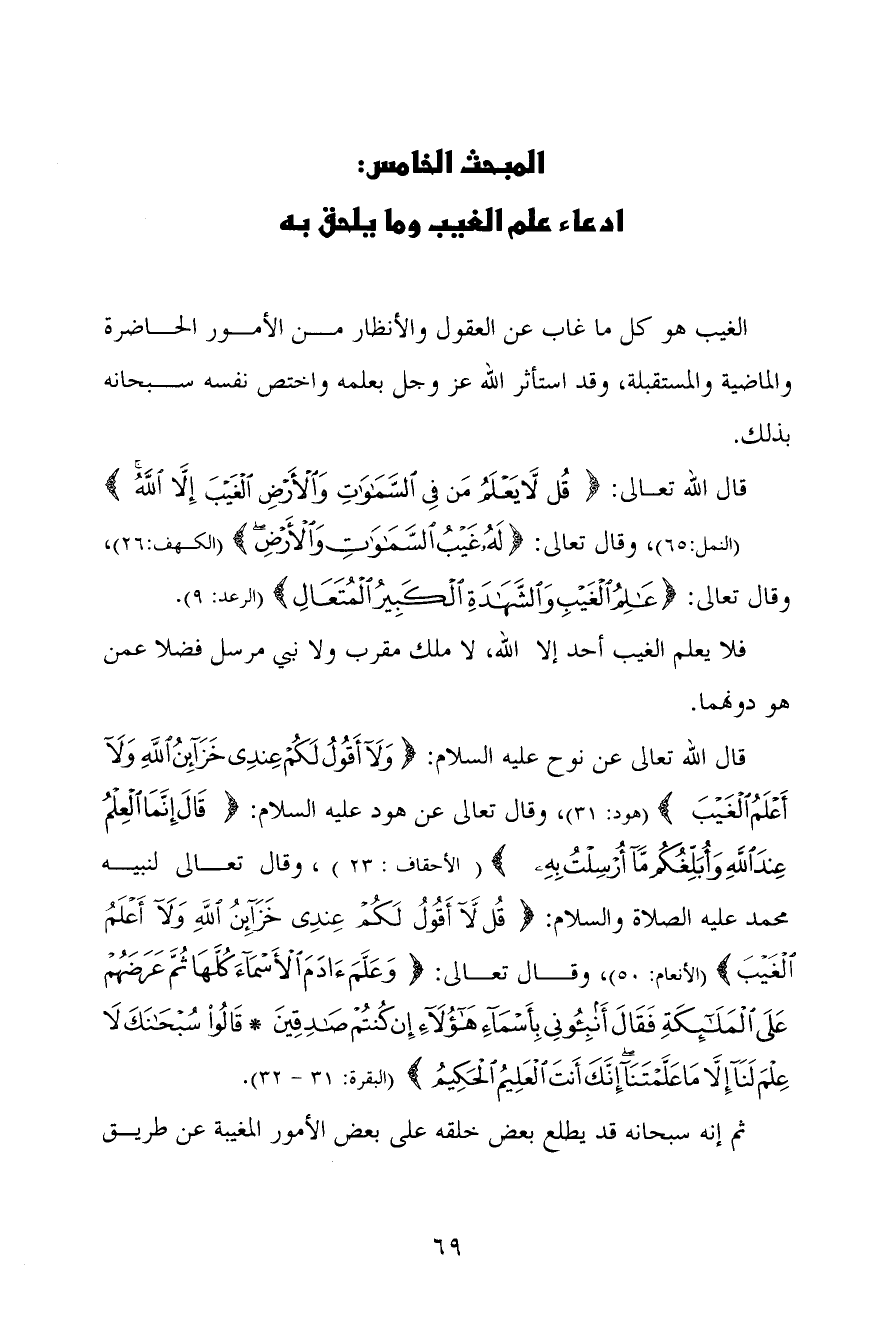 المبحث الخامس:
ادعاء علم الغيب وما يلحق به
الغيب هو كل ما غاب عن العقول والأنظار مـن الأمـور الحـاضرة
والماضية والمستقبلة، وقد استأثر الله عز وجل بعلمه واختص نفسه سـبحانه
بذلك.
قال الله تعـالى: ﴿ قُل لَّا يَعۡلَمُ مَن فِي ٱلسَّمَٰوَٰتِ وَٱلۡأَرۡضِ ٱلۡغَيۡبَ إِلَّا ٱللَّهُۚ ﴾
(النمل:٦٥)، وقال تعالى: ﴿ لَهُۥ غَيۡبُ ٱلسَّمَٰوَٰتِ وَٱلۡأَرۡضِۖ ﴾ (الكـهف:٢٦)،
وقال تعالى: ﴿ عَٰلِمُ ٱلۡغَيۡبِ وَٱلشَّهَٰدَةِ ٱلۡكَبِيرُ ٱلۡمُتَعَالِ ﴾ (الرعد: ٩).
فلا يعلم الغيب أحد إلا الله، لا ملك مقرب ولا نبي مرسل فضلا عمن
هو دونهما.
قال الله تعالى عن نوح عليه السلام: ﴿ وَلَآ أَقُولُ لَكُمۡ عِندِي خَزَآئِنُ ٱللَّهِ وَلَآ
أَعۡلَمُ ٱلۡغَيۡبَ ﴾ (هود: ٣١)، وقال تعالى عن هود عليه السلام: ﴿ قَالَ إِنَّمَا ٱلۡعِلۡمُ
عِندَ ٱللَّهِ وَأُبَلِّغُكُم مَّآ أُرۡسِلۡتُ بِهِۦ ﴾ ( الأحقاف : ٢٣ ) ، وقال تعـالى لنبيـه
محمد عليه الصلاة والسلام: ﴿ قُل لَّآ أَقُولُ لَكُمۡ عِندِي خَزَآئِنُ ٱللَّهِ وَلَآ أَعۡلَمُ
ٱلۡغَيۡبَ ﴾ (الأنعام: ٥٠)، وقـال تعـالى: ﴿ وَعَلَّمَ ءَادَمَ ٱلۡأَسۡمَآءَ كُلَّهَا ثُمَّ عَرَضَهُمۡ
عَلَى ٱلۡمَلَٰٓئِكَةِ فَقَالَ أَنۢبِـُٔونِي بِأَسۡمَآءِ هَٰٓؤُلَآءِ إِن كُنتُمۡ صَٰدِقِينَ * قَالُواْ سُبۡحَٰنَكَ لَا
عِلۡمَ لَنَآ إِلَّا مَا عَلَّمۡتَنَآۖ إِنَّكَ أَنتَ ٱلۡعَلِيمُ ٱلۡحَكِيمُ ﴾ (البقرة: ٣١ – ٣٢).
ثم إنه سبحانه قد يطلع بعض خلقه على بعض الأمور المغيبة عن طريـق
٦٩